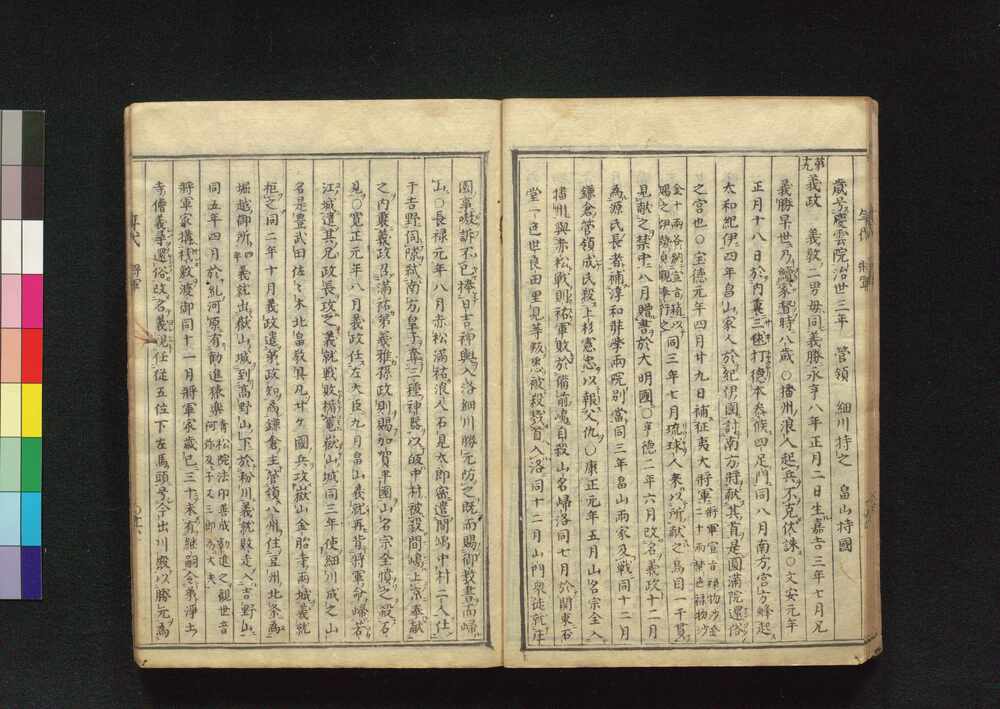 歳号慶雲院治世三年　管領　細川持之　畠山持國
第九
義政　義教二男母同義勝永享八年正月二日生嘉吉三年七月兄
義勝早世乃續家督時八歳〇播州浪人起兵不克伏誅〇文安元年
正月十八日於内裏三毬打德本参候四足門同八月南方宮方蜂起
大和紀伊四年畠山家人於紀伊國討南方將献其首是圓満院還俗
之宮也〇宝德元年四月廿九日補征夷大將軍
將軍宣旨禄物沙金
二十兩禁色禄物沙
金十兩
同三年七月琉球人来以所献之鳥目一千貫
見献之禁中八月贈書於大明國〇享德二年六月改名義政十二月
為源氏長者補淳和弉學兩院別當同三年畠山兩家及戦同十二月
鎌倉管領成氏殺上杉憲忠以報父仇〇康正元年五月山名宗全入
播州與赤松戦則祐軍敗於備前自殺山名帰洛同七月於関東石
堂一色世良田里見等叛悉被殺首入洛同十二月山門衆徒就庄
園事嗷訴不已捧日吉神輿入洛細川勝元防之既而賜御教書而帰
山〇長禄元年八月赤松満祐浪人石見太郎密遣間嶋中村二人仕
于吉野伺隙弑南方皇子奪三種神器以中村被殺間嶋上京奉献
之内裏義政召満祐弟義雅孫政則賜加賀半國山名宗全憤之殺石
見〇寛正元年八月義政任左大臣九月畠山義就再背將軍命
江城遣其兄政長攻之義就戦敗楯篭嶽山城同三年使細川成之山
名是豊武田佐々木北畠教具凡廿ケ國兵攻嶽山金胎寺兩城義就
拒之同二年十月義政遣弟政知為鎌倉主管領八州住豆州北条為
堀越御所四年義就出嶽山城到高野山下於粉川義就敗走入吉野山
同五年四月於糺河原有勧進猿楽
青松院法印善成勧進之観世音
阿弥及子又三郎為大夫
將軍家搆桟敷渡御同十一月將軍家歳已三十未有継嗣令弟淨土
寺僧義尋還俗改名義視任従五位下左馬頭号今出川殿以勝元為